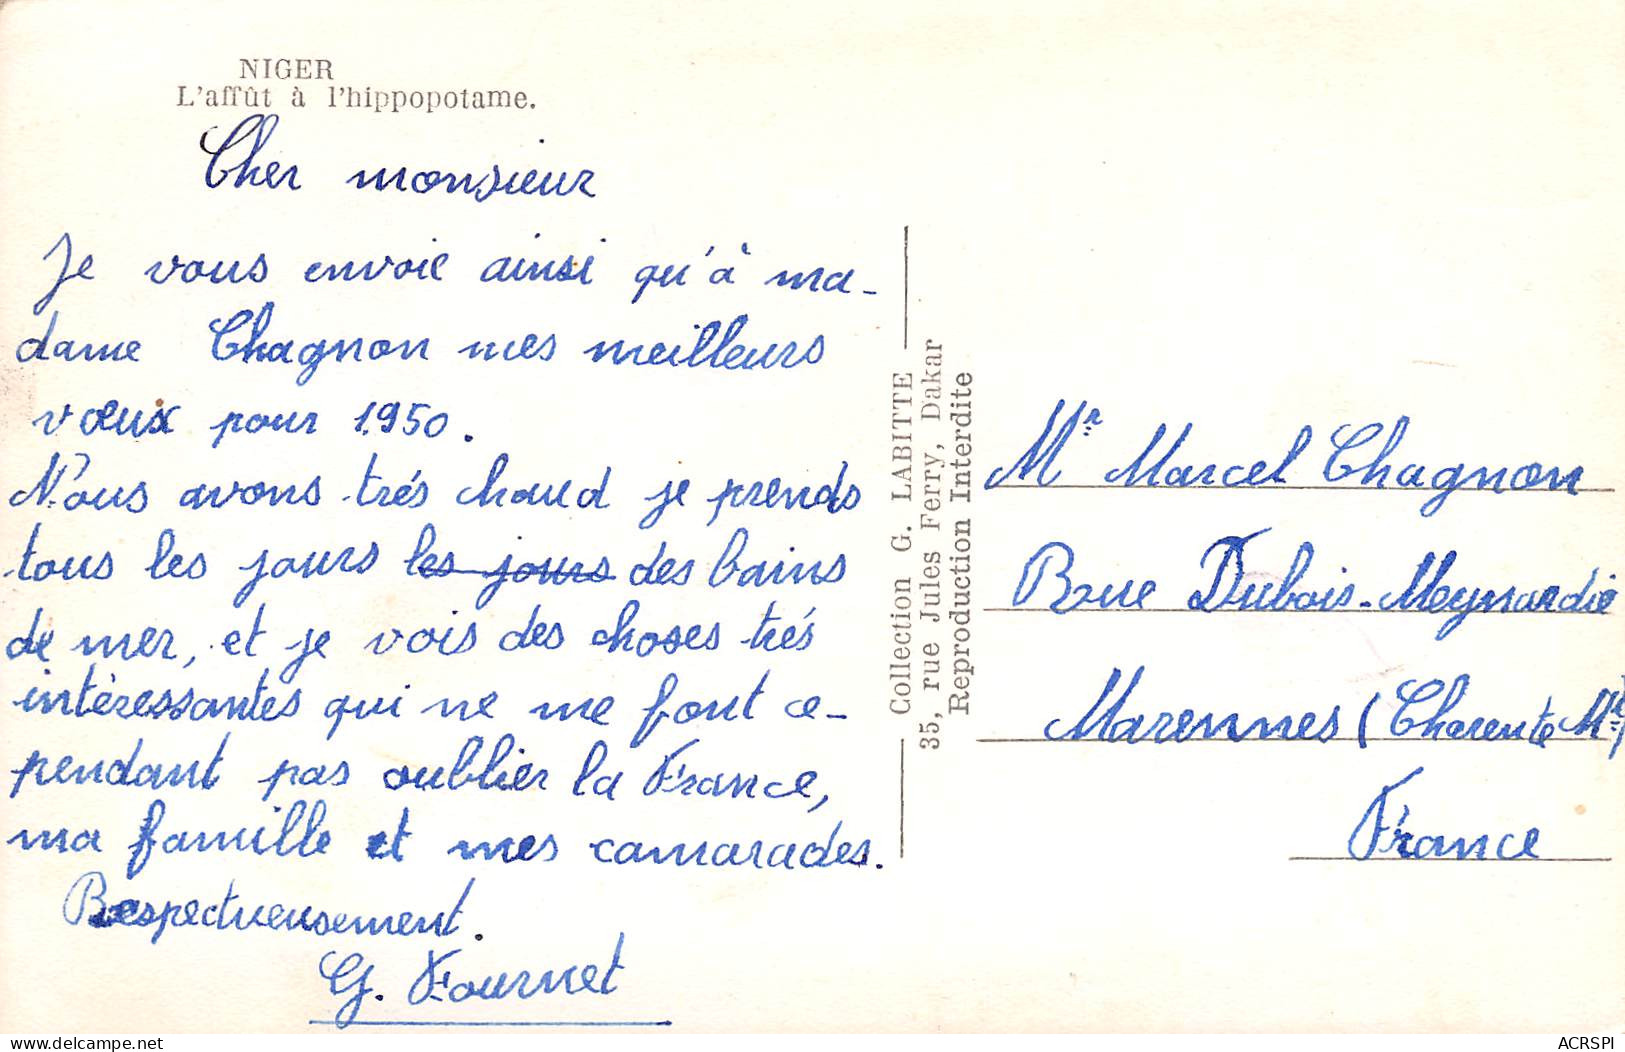 NIGER
L'affût à l'hippopotame.
Cher monsieur
Je vous envoie ainsi qu'à ma-
dame Chagnon mes meilleurs
vœux pour 1950.
Nous avons trés chaud je prends
tous les jours les jours des bains
de mer, et je vois des choses trés
intéressantes qui ne me font ce-
pendant pas oublier la France,
ma famille et mes camarades.
Respectueusement.
G. Fournet
Collection G. LABITTE
35, rue Jules Ferry, Dakar
Reproduction Interdite
Mr Marcel Chagnon
Rue Dubois-Meynardie
Marennes (Charente Me)
France
delcampe.net
ACRSPI